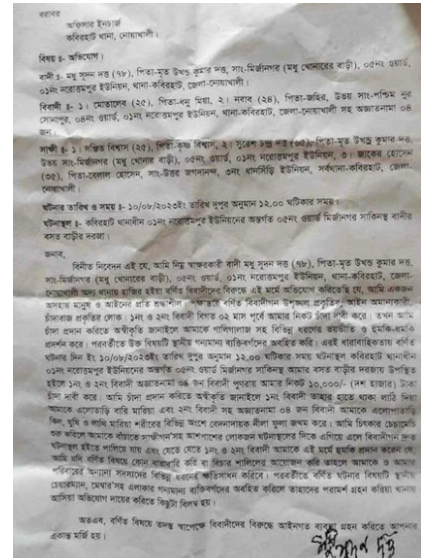 বরাবর
অফিসার ইনচার্জ
কবিরহাট থানা, নোয়াখালী।
বিষয় ঃ- অভিযোগ।
বাদী ঃ- মধু সূদন দত্ত (৭৮), পিতা-মৃত উখন্ড কুমার দত্ত, সাং-মির্জানগর (মধু খোনারের বাড়ী), ০৫নং ওয়ার্ড,
০১নং নরোত্তমপুর ইউনিয়ন, থানা-কবিরহাট, জেলা-নোয়াখালী।
বিবাদী ঃ- ১। মোতালেব (২৫), পিতা-বনু মিয়া, ২। নবাব (২৪), পিতা-জহির, উভয় সাং-পশ্চিম নুর
সোনাপুর, ০৪নং ওয়ার্ড, ০১নং নরোত্তমপুর ইউনিয়ন, থানা-কবিরহাট, জেলা-নোয়াখালী সহ অজ্ঞাতনামা ০৪
জন।
সাক্ষী ঃ- ১। সঞ্জিত বিশ্বাস (২৫), পিতা-কৃষ্ণ বিশ্বাস, ২। সুরেশ চন্দ্র দত্ত (৬৫), পিতা-মৃত উখন্ড কুমার দত্ত,
উভয় সাং-মির্জানগর (মধু খোনার বাড়ী), ০৫নং ওয়ার্ড, ০১নং নরোত্তমপুর ইউনিয়ন, ৩। জাকের হোসেন
(৩৫), পিতা-বেলাল হোসেন, সাং-উত্তর জগদানন্দ, ৩নং ধানসিঁড়ি ইউনিয়ন, সর্বথানা-কবিরহাট, জেলা-
নোয়াখালী।
ঘটনার তারিখ ও সময় ঃ- ১০/০৮/২০২৩ইং তারিখ দুপুর অনুমান ১২.০০ ঘটিকার সময়।
ঘটনাস্থল ঃ- কবিরহাট থানাধীন ০১নং নরোত্তমপুর ইউনিয়নের অন্তর্গত ০৫নং ওয়ার্ড মির্জানগর সাকিনস্থ বাদীর
বসত বাড়ীর দরজা।
জনাব,
বিনীত নিবেদন এই যে, আমি নিম্ন স্বাক্ষরকারী বাদী মধু সূদন দত্ত (৭৮), পিতা-মৃত উখন্ড কুমার দত্ত,
সাং-মির্জানগর (মধু খোনারের বাড়ী), ০৫নং ওয়ার্ড, ০১নং নরোত্তমপুর ইউনিয়ন, থানা-কবিরহাট, জেলা-
নোয়াখালী অদ্য থানায় হাজির হইয়া বর্ণিত বিবাদীদের বিরুদ্ধে এই মর্মে অভিযোগ করিতেছি যে, আমি একজন
অসহায় মানুষ ও আইনের প্রতি শ্রদ্ধাশীল। পক্ষান্তরে বর্ণিত বিবাদীগন উশৃঙ্খল প্রকৃতির, আইন অমান্যকারী,
চাঁদাবাজ প্রকৃতির লোক। ১নং ও ২নং বিবাদী বিগত ০২ মাস পূর্বে আমার নিকট চাঁদা দাবী করে। তখন আমি
চাঁদা প্রদান করিতে অস্বীকৃতি জানাইলে আমাকে গালিগালাজ সহ বিভিন্ন ধরণের ভয়ভীতি ও হুমকি-ধমকি
প্রদর্শন করে। পরবর্তীতে উক্ত বিষয়টি স্থানীয় গন্যমান্য ব্যক্তিবর্গদের অবহিত করি। এরই ধারাবাহিকতায় বর্ণিত
ঘটনার দিন ইং ১০/০৮/২০২৩ইং তারিখ দুপুর অনুমান ১২.০০ ঘটিকার সময় ঘটনাস্থল কবিরহাট থানাধীন
০১নং নরোত্তমপুর ইউনিয়নের অন্তর্গত ০৫নং ওয়ার্ড মির্জানগর সাকিনস্থ আমার বসত বাড়ীর দরজায় উপস্থিত
হইলে ১নং ও ২নং বিবাদী অজ্ঞাতনামা ০৪ জন বিবাদী পুণরায় আমার নিকট ১০,০০০/- (দশ হাজার) টাকা
চাঁদা দাবী করে। আমি চাঁদা প্রদান করিতে অস্বীকৃতি জানাইলে ১নং বিবাদী তাহার হাতে থাকা লাঠি দিয়া
আমাকে এলোতাড়ি বারি মারিয়া এবং ২নং বিবাদী সহ অজ্ঞাতনামা ০৪ জন বিবাদী আমাকে এলোপাতাড়ি
কিল, ঘুষি ও লাথি মারিয়া শরীরের বিভিন্ন অংশে বেদনাদায়ক নীলা ফুলা জখম করে। আমি চিৎকার চেচামেচি
শুরু করিলে আমাকে বাঁচাতে সাক্ষীগন'সহ আশপাশের লোকজন ঘটনাস্থলের দিকে এগিয়ে এলে বিবাদীগন দ্রুত
ঘটনাস্থল হইতে পালিয়ে যায় এবং যেতে যেতে ১নং ও ২নং বিবাদী আমাকে এই মর্মে হুমকি প্রদান করেন যে,
আমি যদি বর্ণিত বিষয়ে কোন বাড়াবাড়ি করি বা বিচার শালিসের আয়োজন করি তাহলে আমাকে ও আমার
পরিবারের অন্যান্য সদস্যদের বিভিন্ন ধরনের ক্ষতিসাধন করিবে। পরবর্তীতে বর্ণিত ঘটনার বিষয়টি স্থানীয়
চেয়ারম্যান, মেম্বার'সহ এলাকার গন্যমান্য ব্যক্তিবর্গদের অবহিত করিলে তাহাদের পরামর্শ গ্রহন করিয়া থানায়
আসিয়া অভিযোগ দায়ের করিতে কিছুটা বিলম্ব হয়।
অতএব, বর্ণিত বিষয়ে তদন্ত স্বাপেক্ষে বিবাদীদের বিরুদ্ধে আইনগত ব্যবস্থা গ্রহন করিতে আপনার
একান্ত মর্জি হয়।
দত্ত